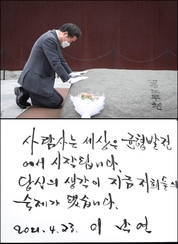 사람사는 세상은 균형발전
에서 시작됩니다.
당신의 생각이 지금 저희들의
숙제가 됐습니다.
2021. 4. 23. 이 낙 연